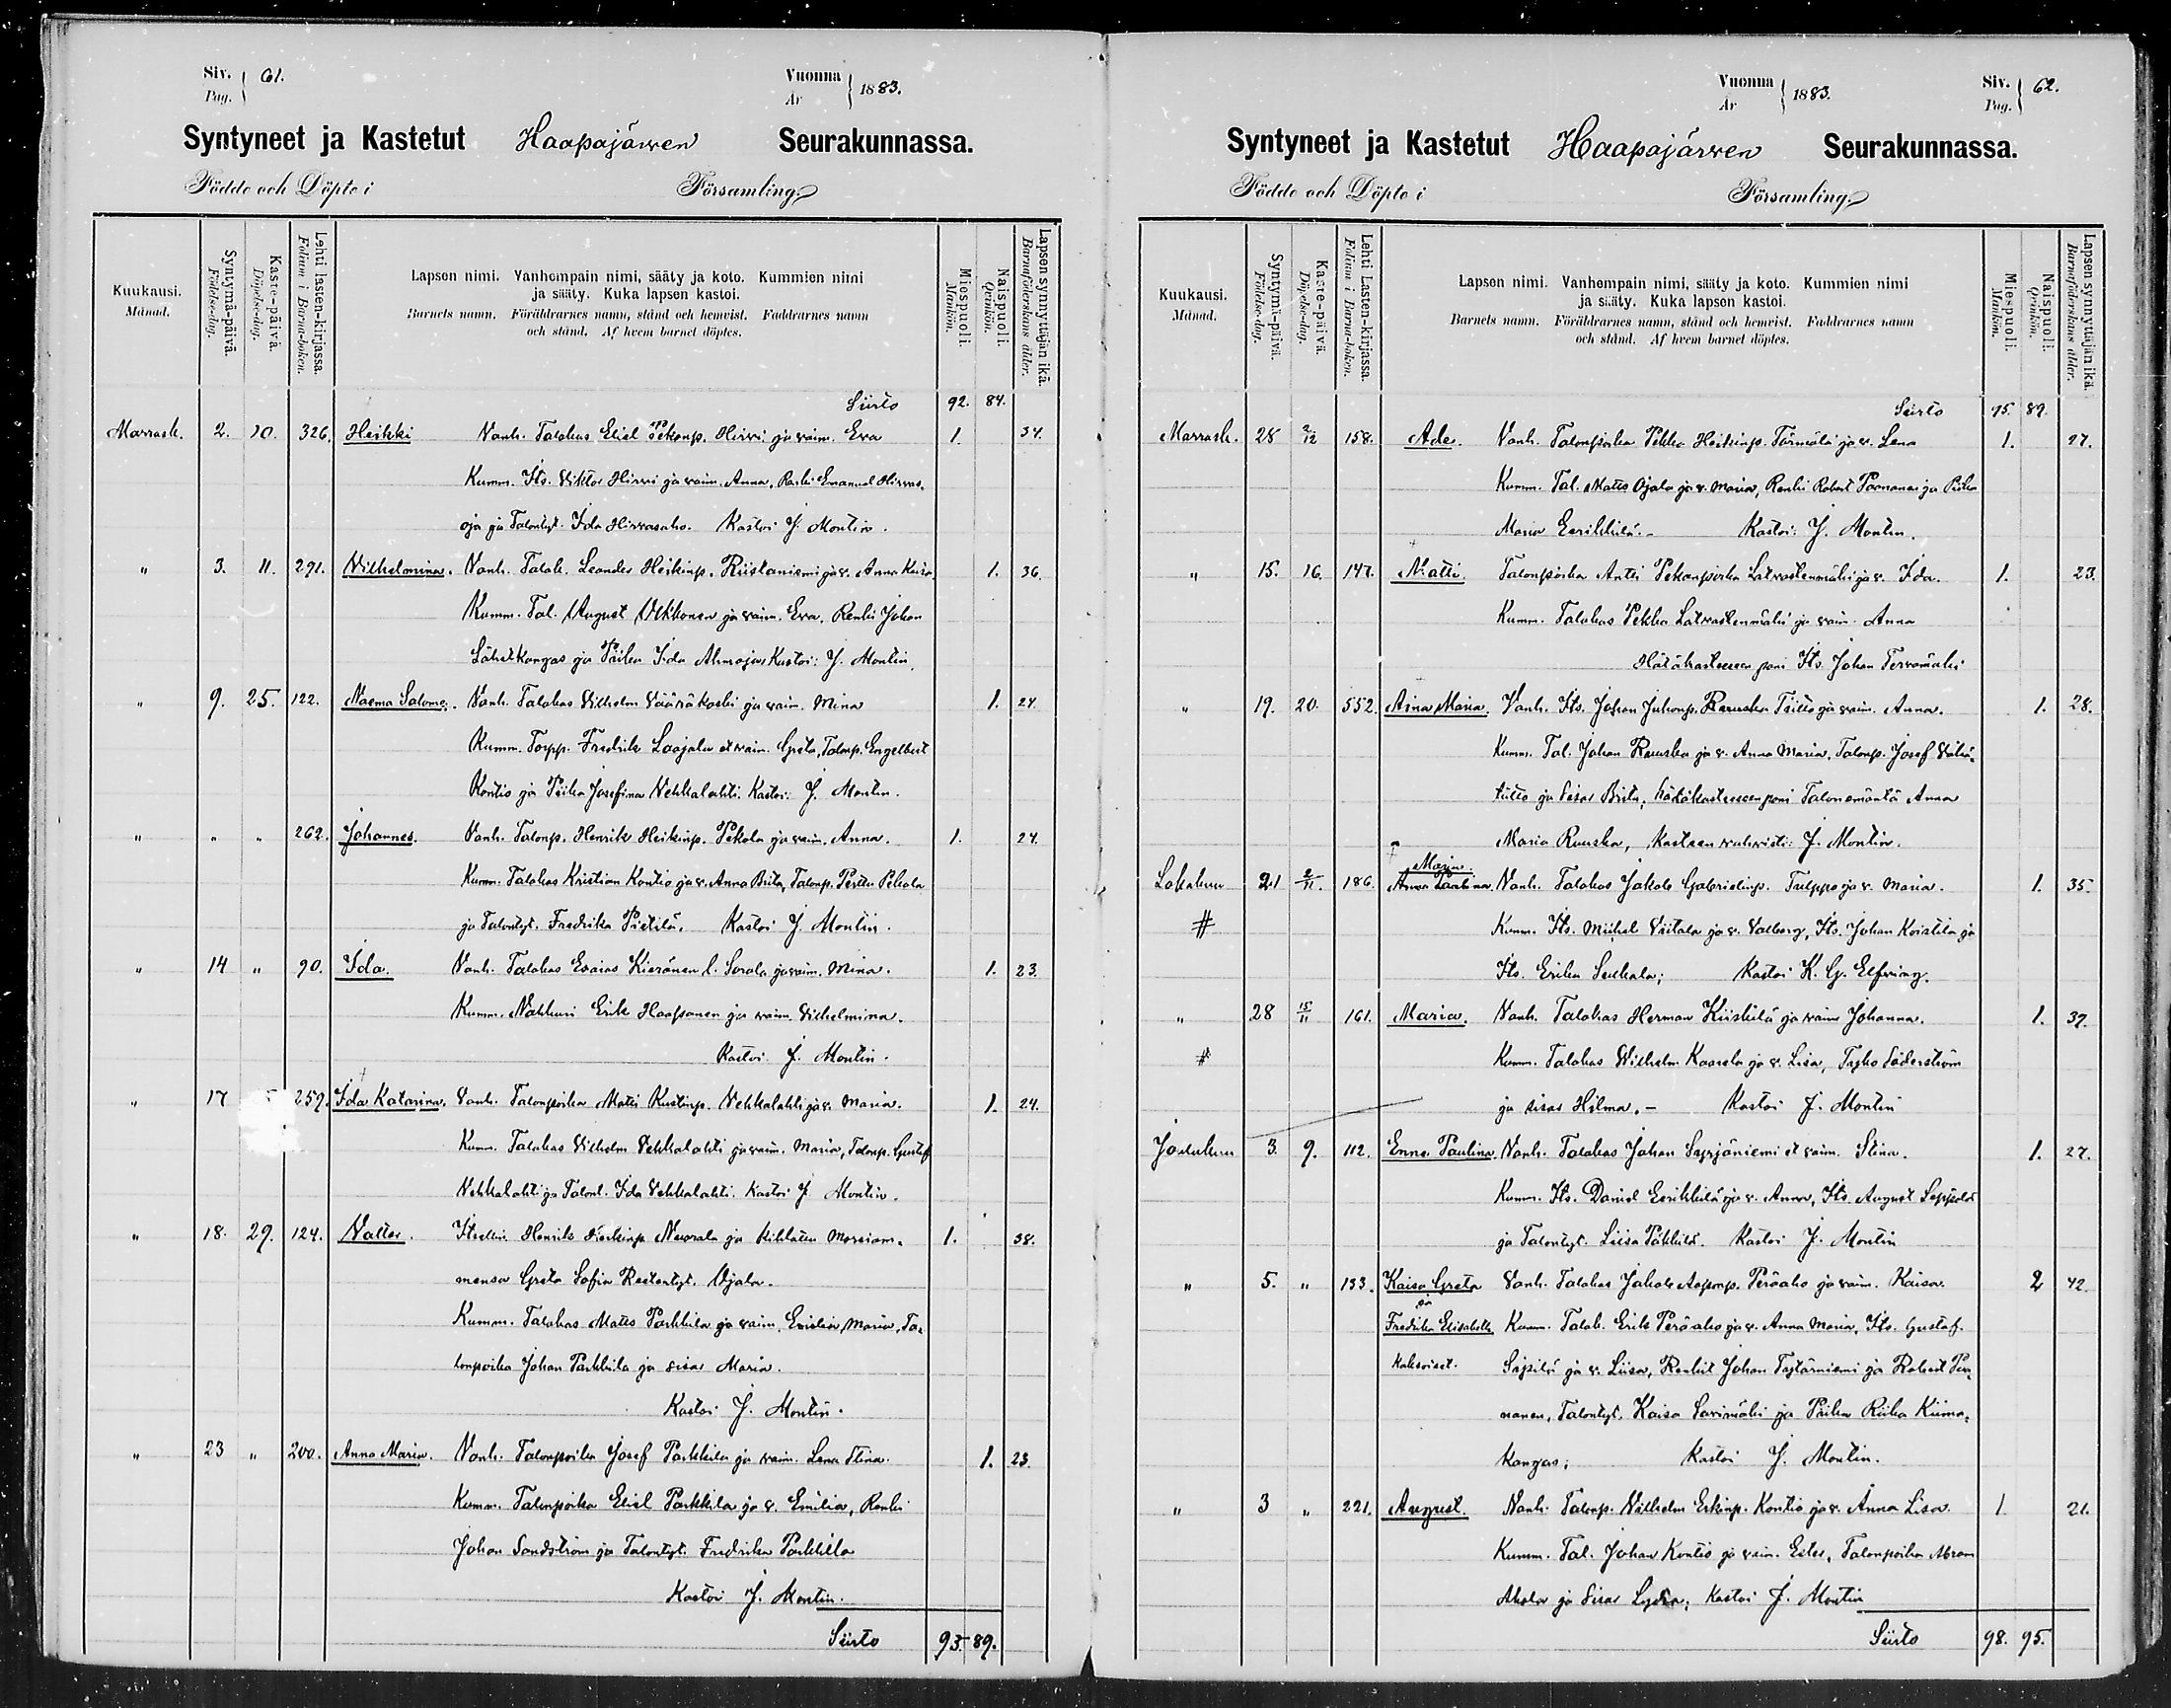 Siv. 61.
Pag.
Vuonna 1883.
År
Syntyneet ja Kastetut Haapajärwen Seurakunnassa.
Födde och Döpte i Församling.
Kuukausi. Månad.
Syntymä-päivä. Födelse-dag.
Kaste-päivä. Döpelse-dag.
Lehti lasten-kirjassa. Folium i Barna-boken.
Lapsen nimi. Vanhempain nimi, sääty ja koto. Kummien nimi
ja sääty. Kuka lapsen kastoi.
Barnets namn. Föräldrarnes namn, stånd och hemvist. Faddrarnes namn
och stånd. Af hvem barnet döptes.
Miespuoli. Mankön.
Naispuoli. Qvinkön.
Lapsen synnyttäjän ikä. Barnaföderskans ålder.
Siirto 92. 84.
Marrask. 2. 10. 326. Heikki Vanh. Talokas Eliel Pekanp. Hirvi ja vaim. Eva 1. 34.
Kumm. Its. Viktor Hirvi ja vaim. Anna, Renki Emanuel Hirvas-
oja ja Talontyt. Ida Hirvasaho. Kastoi J. Montin.
" 3. 11. 291. Vilhelmina. Vanh. Talok. Leander Heikinp. Ristaniemi ja v. Anna Kaisa 1. 36.
Kumm. Tal. August Ukkonen ja vaim. Eva, Renki Johan
Lähetkangas ja Piika Ida Ahmaoja Kastoi: J. Montin.
" 9. 25. 122. Naema Salome. Vanh. Talokas Vilhelm Vääräkoski ja vaim. Mina 1. 24.
Kumm. Torpp. Fredrik Laajala et vaim. Greta, Talonp. Engelbert
Kontio ja Piika Josefina Vehkalahti. Kastoi: J. Montin.
" " " 262. Johannes. Vanh. Talonp. Henrik Heikinp. Pekola ja vaim. Anna. 1. 24.
Kumm. Talokas Kristian Kontio ja v. Anna Brita, Talonp. Perttu Pekola
ja Talontyt. Fredrika Pietilä. Kastoi J. Montin.
" 14 " 90. Ida. Vanh. Talokas Esaias Kieränen l. Sorola ja vaim. Mina. 1. 23.
Kumm. Nahkuri Erik Haapanen ja vaim. Vilhelmina.
Kastoi J. Montin.
" 17 259. Ida Katarina. Vanh. Talonpoika Matti Kustinp. Vehkalahti ja v. Maria. 1. 24.
Kumm. Talokas Vilhelm Vehkalahti ja vaim. Maria, Talonp. Gustaf
Vehkalahti ja Talont. Ida Vehkalahti. Kastoi J. Montin.
" 18. 29. 124. Valter. Itsellin. Henrik Heikinp. ja kihlattu morsiam- 1. 38.
mensa Greta Sofia Ojala.
Kumm. Talokas Matts Parkkila ja vaim. Maria, Ta-
lonpoika Johan Parkkila ja sisar Maria.
Kastoi J. Montin.
" 23 " 200. Anna Maria. Vanh. Talonpoika Josef Parkkila ja vaim. Lena Stina. 1. 23.
Kumm. Talonpoika Eliel Parkkila ja v. Emilia, Renki
Johan Sandström ja Talontyt. Fredrika Parkkila
Kastoi J. Montin.
Siirto 93. 89.
Vuonna 1883.
År
Siv. 62.
Pag.
Syntyneet ja Kastetut Haapajärven Seurakunnassa.
Födde och Döpte i Församling.
Kuukausi. Månad.
Syntymä-päivä. Födelse-dag.
Kaste-päivä. Döpelse-dag.
Lehti Lasten-kirjassa. Folium i Barna-boken.
Lapsen nimi. Vanhempain nimi, sääty ja koto. Kummien nimi
ja sääty. Kuka lapsen kastoi.
Barnets namn. Föräldrarnes namn, stånd och hemvist. Faddrarnes namn
och stånd. Af hvem barnet döptes.
Miespuoli. Mankön.
Naispuoli. Qvinkön.
Lapsen synnyttäjän ikä. Barnaföderskans ålder.
Siirto 95. 89.
Marrask. 28 2/12 158. Ade. Vanh. Talonpoika Pekka Heikinp. Törmälä ja v. Lena 1. 27.
Kumm. Tal. Matts Ojala ja v. Maria, Renki Robert Paananen ja Piika
Maria Eerikkilä.- Kastoi: J. Montin.
" 15. 16. 147. Matti. Talonpoika Antti Pekanpoika Latvastenmäki ja v. Ida. 1. 23.
Kumm. Talokas Pekka Latvastenmäki ja vaim. Anna
Hätäkasteesen pani Its. Johan Tervamäki
" 19. 20. 552. Aina Maria. Vanh. Its. Johan Juhonp. Ruuska Tiitto ja vaim. Anna. 1. 28.
Kumm. Tal. Johan Ruuska ja v. Anna Maria, Talonp. Josef Väli-
tiitto ja Sisar Brita; hätäkasteeseen pani Talonemäntä Anna
Maria Ruuska, Kasteen vahvisti: J. Montin.
Maria
Lokakuu 21 2/11. 186. Anna Paulina. Vanh. Talokas Jakob Gabrielinp. Tulppo ja v. Maria. 1. 35.
# Kumm. Its. Mikael Viitala ja v. Valborg, Its. Johan Koistila ja
Its. Erika Seckala; Kastoi K. G. Elfving.
" 28 15/11 161. Maria. Vanh. Talokas Herman Kiiskilä ja vaim Johanna. 1. 37.
# Kumm. Talokas Vilhelm Kaarela ja v. Lisa, Söderström
ja sisar Hilma.- Kastoi J. Montin
Joulukuu 3. 9. 112. Enna Paulina. Vanh. Talokas Johan Syrjäniemi et vaim. Stina. 1. 27.
Kumm. Its. Daniel Eerikkilä ja v. Anna, Its. August Seppälä
ja Talontyt. Liisa Pökkilä. Kastoi J. Montin
" 5. " 133. Kaisa Greta Vanh. Talokas Jakob Aaponp. Peräaho ja vaim. Kaisa. 2 42.
ja
Fredrika Elisabeth, Kumm. Talok. Erik Peräaho ja v. Anna Maria, Its. Gustaf
kaksoiset. Sipilä ja v. Liisa, Renkit Johan ja Robert Paa-
nanen, Talontyt. Kaisa Savimäki ja Piika Riika Kiima-
kangas; Kastoi J. Montin.
" 3 " 221. August. Vanh. Talonp. Vilhelm Erkinp. Kontio ja v. Anna Lisa. 1 21.
Kumm. Tal. Johan Kontio ja vaim. Ester, Talonpoika Abram
Ahola ja Sisar Lydia; Kastoi J. Montin
Siirto 98. 95.